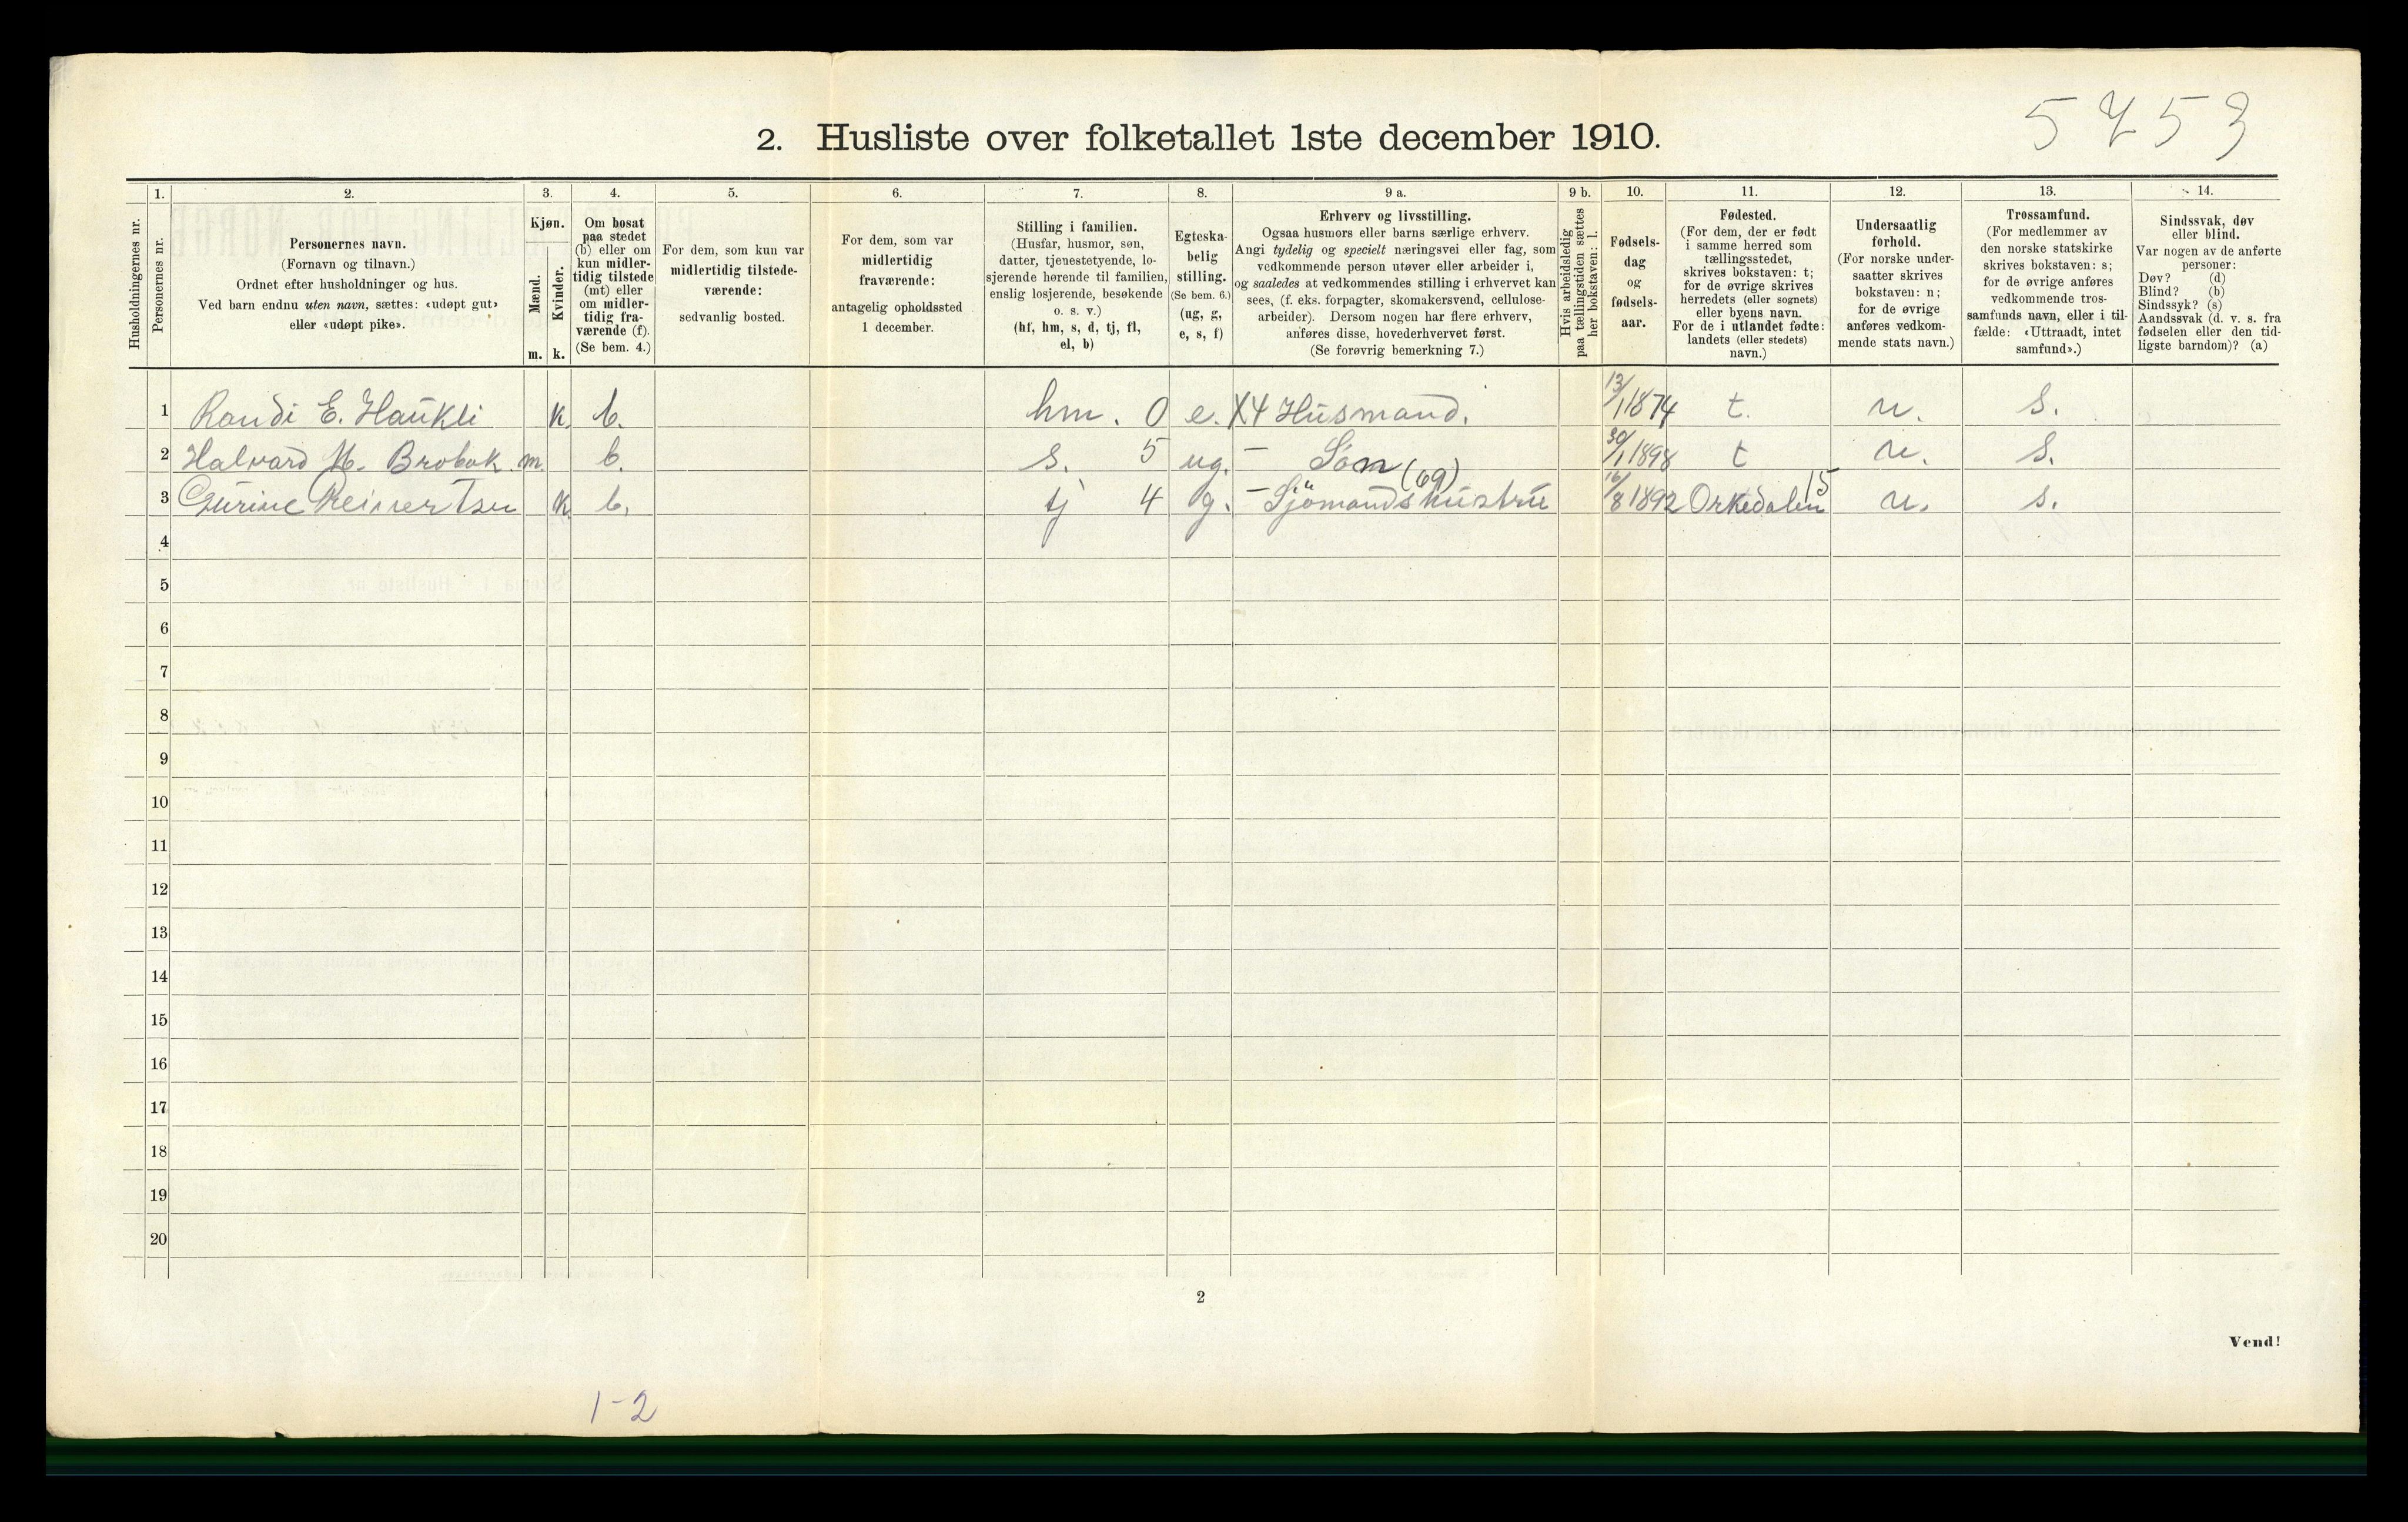 5753
2. Husliste over folketallet 1ste december 1910.
Husholdningernes nr.
1.
Personernes nr.
2.
Personernes navn.
(Fornavn og tilnavn.)
Ordnet efter husholdninger og hus.
Ved barn endnu uten navn, sættes: «udøpt gut»
eller «udøpt pike».
3.
Kjøn.
Mænd.
m.
Kvinder.
k.
4.
Om bosat
paa stedet
(b) eller om
kun midler-
tidig tilstede
(mt) eller
om midler-
tidig fra-
værende (f).
(Se bem. 4.)
5.
For dem, som kun var
midlertidig tilstede-
værende:
sedvanlig bosted.
6.
For dem, som var
midlertidig
fraværende:
antagelig opholdssted
1 december.
7.
Stilling i familien.
(Husfar, husmor, søn,
datter, tjenestetyende, lo-
sjerende hørende til familien,
enslig losjerende, besøkende
o. s. v.)
(hf, hm, s, d, tj, fl,
el, b)
8.
Egteska-
belig
stilling.
(Se bem. 6.)
(ug, g,
e, s, f)
9 a.
Erhverv og livsstilling.
Ogsaa husmors eller barns særlige erhverv.
Angi tydelig og specielt næringsvei eller fag, som
vedkommende person utøver eller arbeider i,
og saaledes at vedkommendes stilling i erhvervet kan
sees, (f. eks. forpagter, skomakersvend, cellulose-
arbeider). Dersom nogen har flere erhverv,
anføres disse, hovederhvervet først.
(Se forøvrig bemerkning 7.)
9 b.
Hvis arbeidsledig
paa tællingstiden sættes
her bokstaven: l.
10.
Fødsels-
dag
og
fødsels-
aar.
11.
Fødested.
(For dem, der er født
i samme herred som
tællingsstedet,
skrives bokstaven: t;
for de øvrige skrives
herredets (eller sognets)
eller byens navn.
For de i utlandet fødte:
landets (eller stedets)
navn.)
12.
Undersaatlig
forhold.
(For norske under-
saatter skrives
bokstaven: n;
for de øvrige
anføres vedkom-
mende stats navn.)
13.
Trossamfund.
(For medlemmer av
den norske statskirke
skrives bokstaven: s;
for de øvrige anføres
vedkommende tros-
samfunds navn, eller i til-
fælde: «Uttraadt, intet
samfund».)
14.
Sindssvak, døv
eller blind.
Var nogen av de anførte
personer:
Døv? (d)
Blind? (b)
Sindssyk? (s)
Aandssvak (d. v. s. fra
fødselen eller den tid-
ligste barndom)? (a)
1 Randi E. Haukli k. b. hm. 0 e. X4 Husmand. 13/1 1874 t. n. s.
2 Halvard H. Brobak. m. b. s. 5 ug. - Søn 30/1 1898 t n. s.
3 Gurine Reinertsen k. b. tj 4 g. - Sjömandshustru (69) 16/8 1892 Orkedalen 15 n. s.
4
5
6
7
8
9
10
11
12
13
14
15
16
17
18
19
20
2
Vend!
1-2